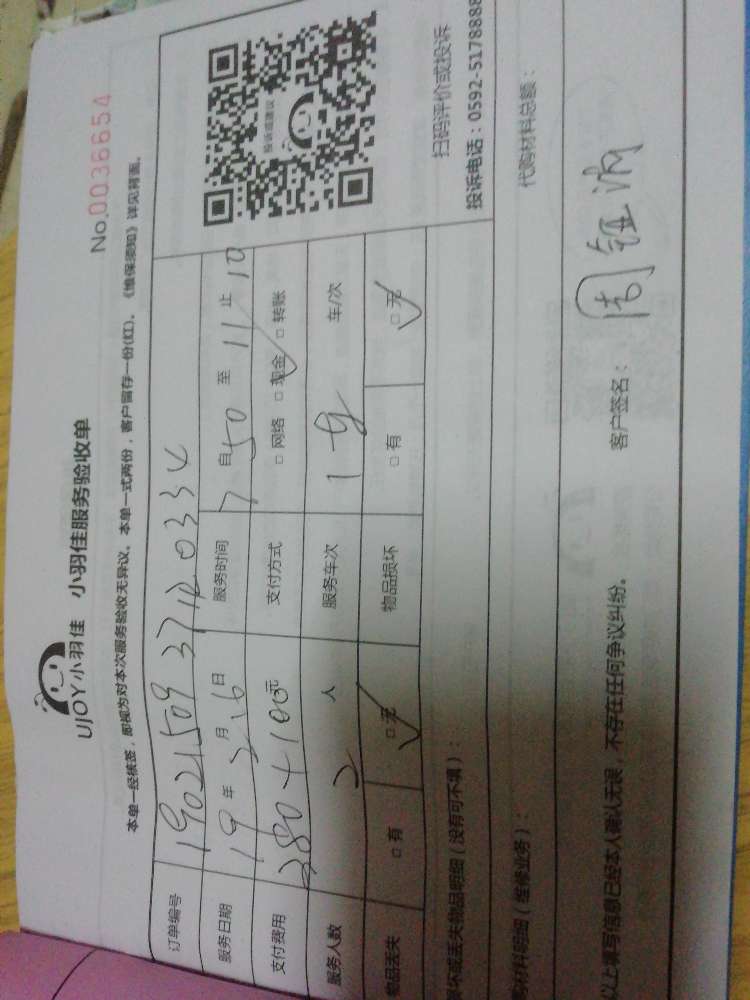 UJOY小羽佳 小羽佳服务验收单
No.0036654
本单一经核签，即视为对本次服务验收无异议。本单一式两份，客户留存一份(红)。《维保须知》详见背面。
订单编号
服务日期 19 年 2 月 16 日 服务时间 7 自 50 至 11 止 10
支付费用 280+100元 支付方式 □ 网络 □ 现金 ✓ □ 转账
服务人数 2 人 服务车次 1 车/次
物品丢失 □ 有 □ 无 ✓ 物品损坏 □ 有 □ 无 ✓
投诉或建议
扫码评价或投诉
投诉电话：0592-5178888
坏或丢失物品明细（没有可不填）：
材料明细（维修业务）： 代购材料总额：
以上填写信息已经本人确认无误，不存在任何争议纠纷。 客户签名：